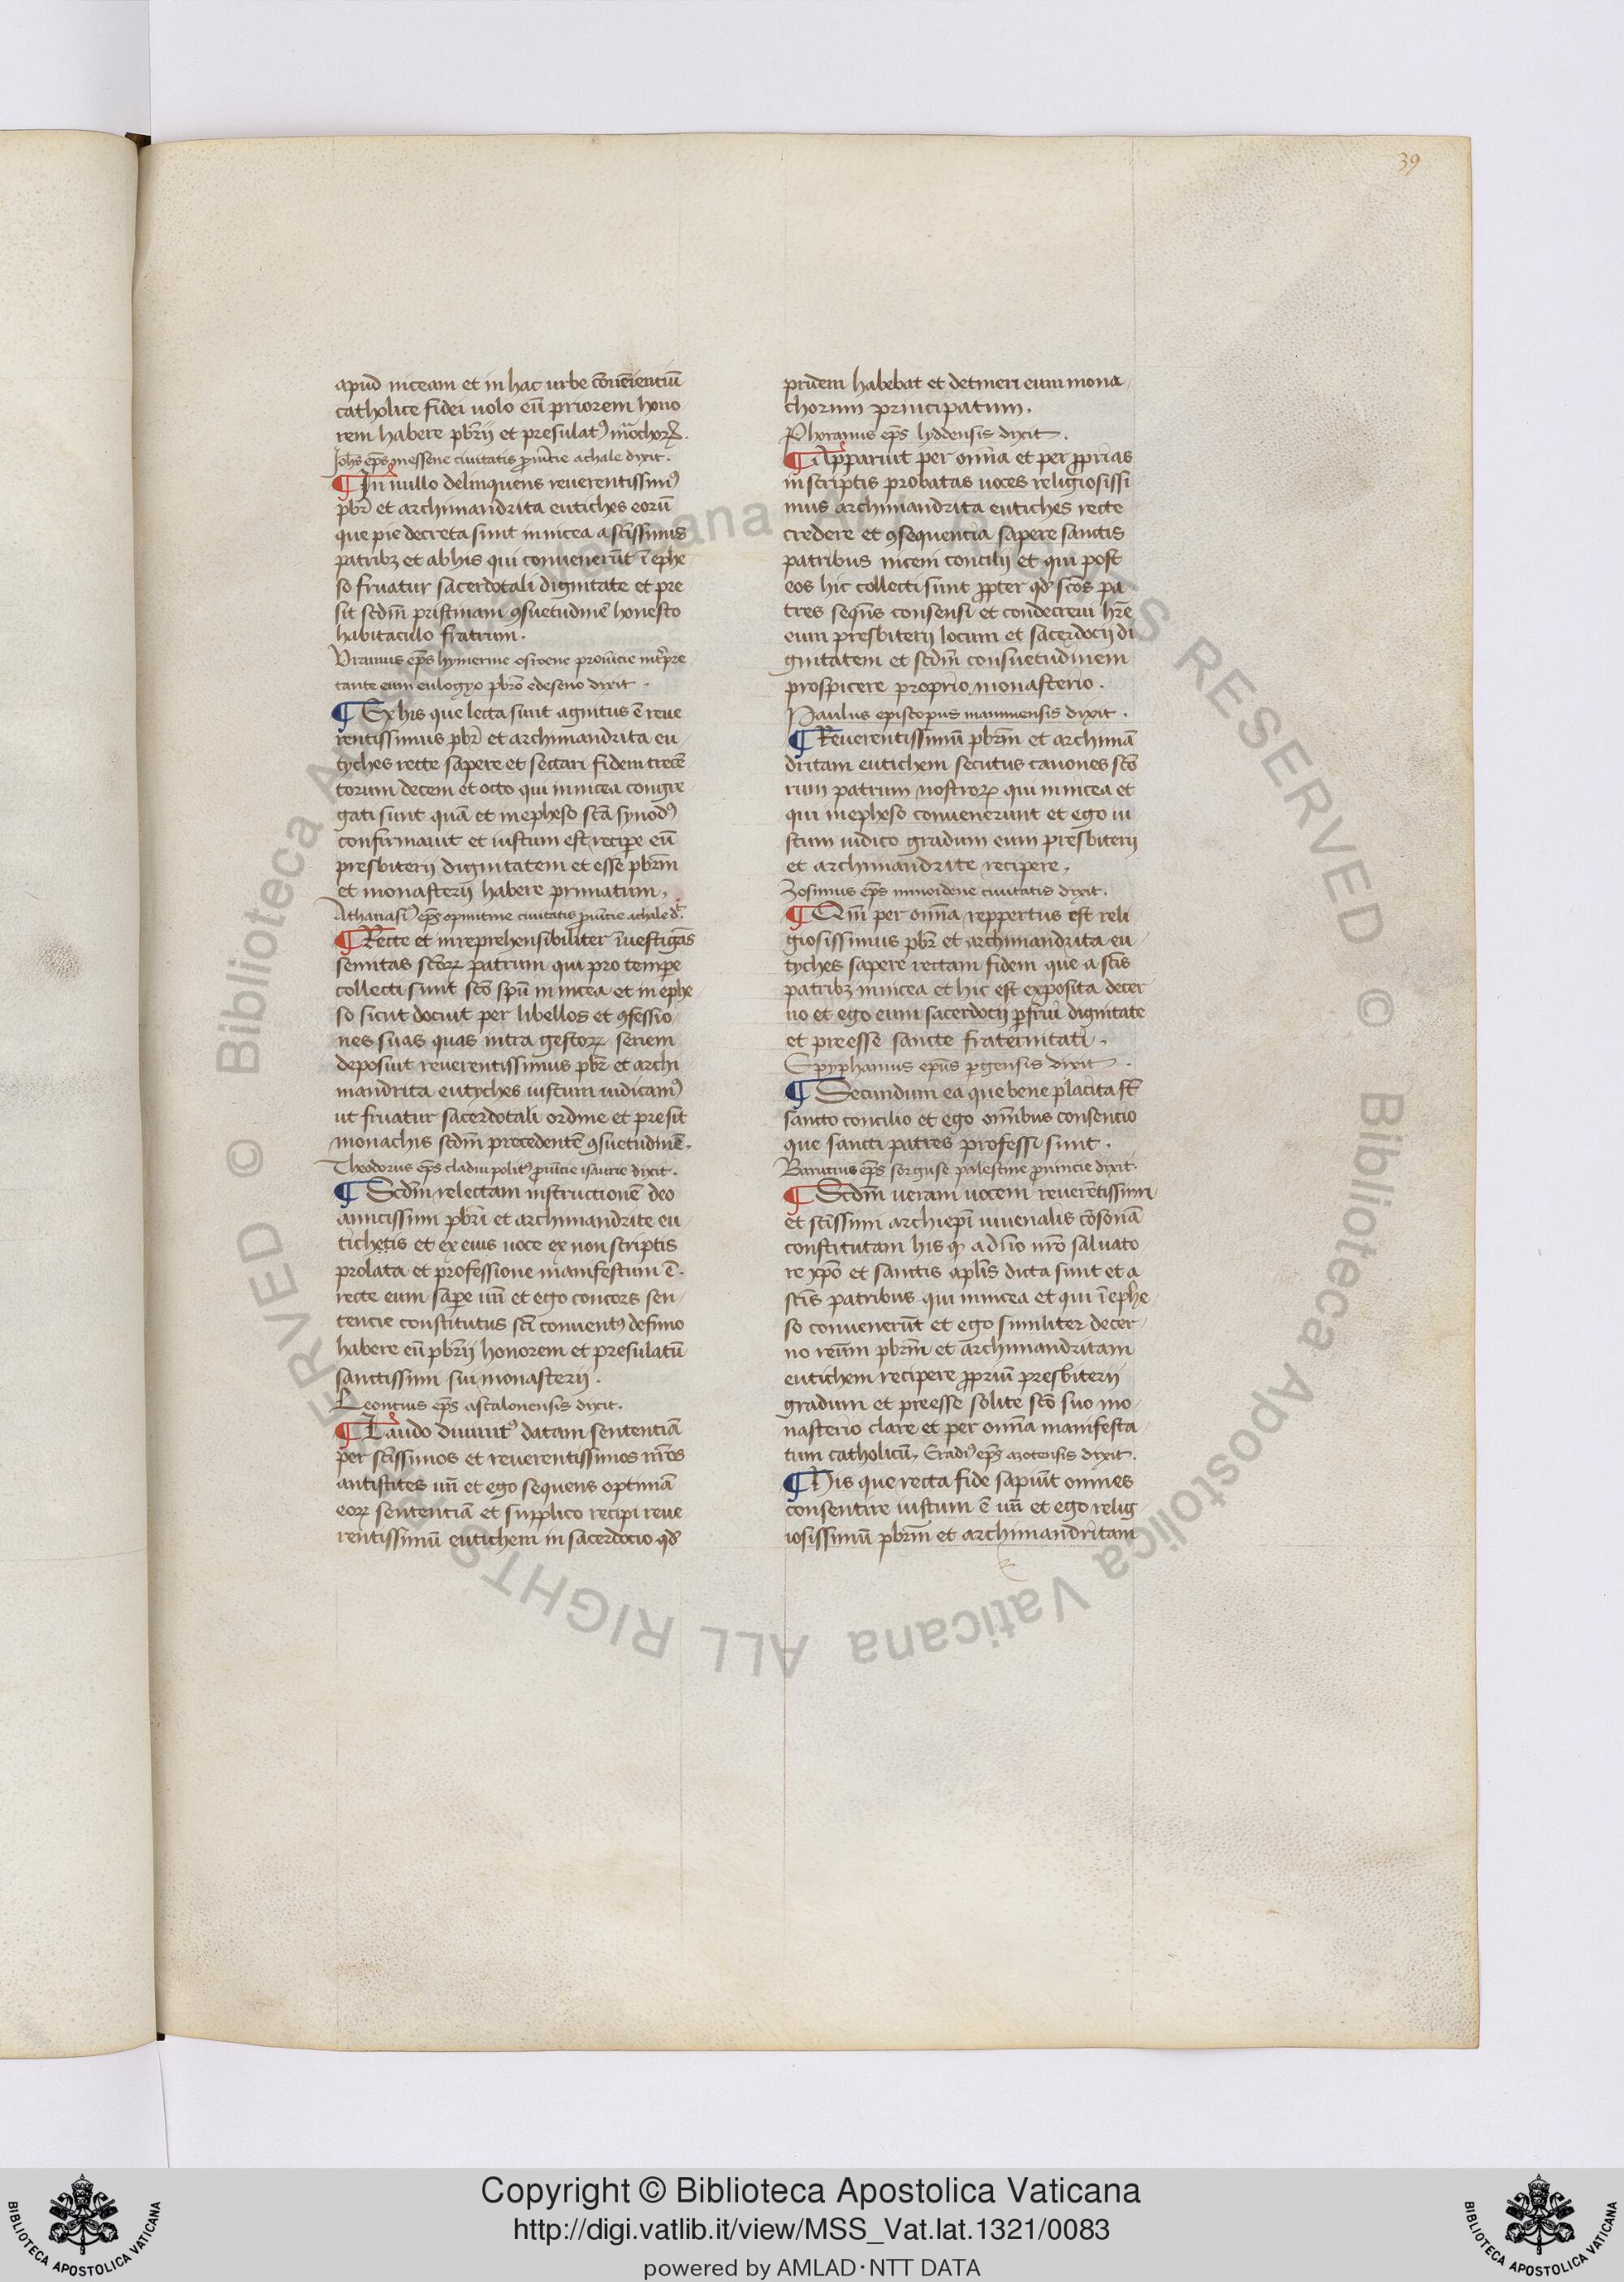 39
apud niceam et in hac urbe cōueientiū
catholice fidei uolo eū priorem hono
rem habere pbrīi et presulatꝰ mōchorꝝ.
Johs ep̄s messene ciuitatis ꝓuīcie achaie dixit.
¶ In nullo delinquens reuerentissimꝰ
pbr̄ et archimandrita eutiches eorū
que pie decreta sunt in nicea a scīssimis
patribꝫ et ab his qui conuenerūt ī ephe
so fruatur sacerdotali dignitate et pre
sit scdm̄ pristinam ꝯsuetudinē honesto
habitaculo fratrum.
Viranius ep̄s hymerine osroene prouīcie int̄pre
tante eum eulogyo pbrō edeseno dixit.
¶ Ex his que lecta sunt agnitus ē reue
rentissimus pbr̄ et archimandrita eu
tyches recte sapere et sectari fidem trecē
torum decem et octo qui in nicea congre
gati sunt quā et in epheso scā synodꝰ
confirmauit et iustum est recipe eū
presbiterij dignitatem et esse pbrm̄
et monasterij habere primatum,
Athanasiꝰ ep̄s opuntine ciuitatis ꝓuīcie achaie dͯ.
¶ Recte et inreprehensibiliter īuestigās
semitas scōrꝝ patrum qui pro tempe
collecti sunt scō spū in nicea et in ephe
so sicut docuit per libellos et ꝯfessio
nes suas quas intra gestorꝝ seriem
deposuit reuerentissimus pbr̄ et archi
mandrita eutyches iustum iudicamꝰ
ut fruatur sacerdotali ordine et presit
monachis scdm̄ precedentē ꝯsuetudinē,
Theodorus ep̄s claudiupolitꝰ ꝓuīcie isaurie dixit.
¶ Scdm̄ relectam instructionē deo
amicissimi pbr̄i et archimandrite eu
tichetis et ex eius uoce ex non scriptis
prolata et professione manifestum ē.
recte eum sape uñ et ego concors sen
tencie constitutus scī conuentꝰ definio
habere eū pbrīi honorem et presulatū
sanctissimi sui monasterij.
Leontius ep̄s ascalonensis dixit.
¶ Laudo diuinitꝰ datam sententiā
per scīssimos et reuerentissimos nr̄os
antistites uñ et ego sequens optimā
eorꝝ sententiā et supplico recipi reue
rentissimū eutichem in sacerdocio qđ
pridem habebat et detineri eum mona
chorum principatum.
Photinus ep̄s lyddensis dixit.
¶ Apparuit per om̄ia et per ꝓprias
in scriptis probatas uoces religiosissi
mus archimandrita eutiches recte
credere et ꝯsequencia sapere sanctis
patribus niceni concilij et qui post
eos hic collecti sunt ꝓpter qđ scōs pa
tres seqn̄s consensi et condecreui hr̄e
eum presbiterij locum et sacerdocij di
gnitatem et scdm̄ consuetudinem
prospicere proprio monasterio.
Paulus episcopus maiumensis dixit.
¶ Reuerentissimū pbrm̄ et archimā
dritam eutichem secutus canones scō
rum patrum nostrorꝝ qui in nicea et
qui in epheso conuenerunt et ego iu
stum iudico gradum eum presbiterij
et archimandrite recipere,
Zosimus ep̄s minoidene ciuitatis dixit.
¶ Qm̄ per om̄ia reppertus est reli
giosissimus pbr̄ et archimandrita eu
tyches sapere rectam fidem que a scīs
patribꝫ in nicea et hic est exposita decer
no et ego eum sacerdocij ꝑfrui dignitate
et preesse sancte fraternitati.
Epyphanius epūs ꝑgensis dixit.
¶ Secundum ea que bene placita st̄
sancto concilio et ego om̄ibus consencio
que sancti patres professi sunt.
Baruttius ep̄s sorguse palestine prouincie dixit.
¶ Scdm̄ ueram uocem reuerētissimi
et scīssimi archiepī iuuenalis cōsonā
constitutam his q̨ a dn̄o nr̄o saluato
re xpō et sanctis aplīs dicta sunt et a
scīs patribus qui in nicea et qui ī ephe
so conuenerūt et ego similiter decer
no reuīm pbrm̄ et archimandritam
eutichem recipere ꝓpriū presbiterij
gradum et preesse solite scō suo mo
nasterio clare et per om̄ia manifesta
tum catholicū, Eradiꝰ ep̄s azotensis dixit.
¶ His que recta fide sapiūt omnes
consentire iustum ē uñ et ego relig
iosissimū pbrm̄ et archimandritam
© Biblioteca Apostolica Vaticana ALL RIGHTS RESERVED
Copyright © Biblioteca Apostolica Vaticana
http://digi.vatlib.it/view/MSS_Vat.lat.1321/0083
powered by AMLAD·NTT DATA
BIBLIOTECA APOSTOLICA VATICANA
BIBLIOTECA APOSTOLICA VATICANA